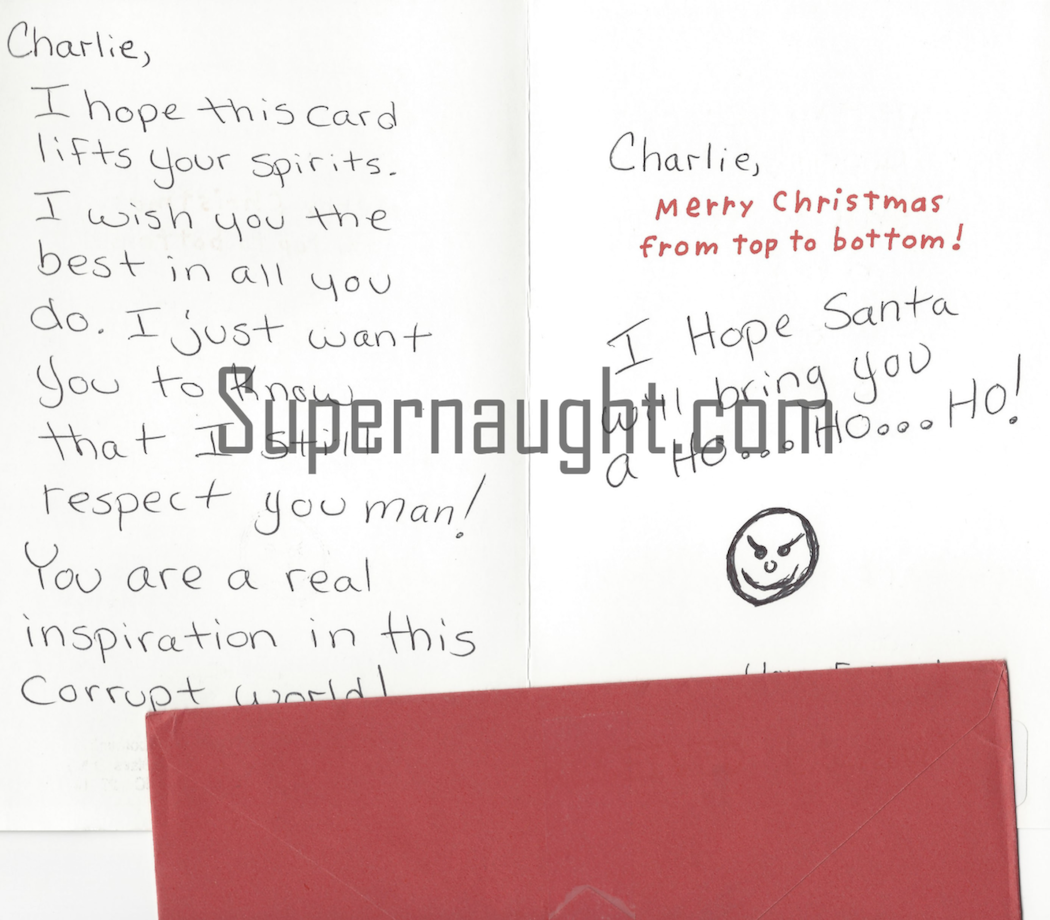 Charlie,
I hope this card
lifts your spirits.
I wish you the
best in all you
do. I just want
you to know
that I still
respect you man!
You are a real
inspiration in this
corrupt world!
Charlie,
Merry Christmas
from top to bottom!
I Hope Santa
will bring you
a HO...HO...HO!
Supernaught.com